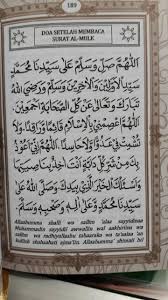 189
DOA SETELAH MEMBACA
SURAT AL-MULK
اَللّٰهُمَّ صَلِّ وَسَلِّمْ عَلَى سَيِّدِنَا مُحَمَّدٍ
سَيِّدِ الْاَوَّلِيْنَ وَالْاٰخِرِيْنَ وَسَلِّمْ وَرَضِيَ اللهُ
تَبَارَكَ وَتَعَالَى عَنْ كُلِّ الصَّحَابَةِ اَجْمَعِيْنَ
اَللّٰهُمَّ اعْصِمْنِيْ بِالْاِسْلَامِ قَائِمًا وَرَاقِدًا وَلَا
مِنْ شَرِّ كُلِّ دَابَّةٍ اَنْتَ اٰخِذٌ بِنَاصِيَتِهَا
وَاَسْئَلُكَ الْخَيْرَ الَّذِيْ بِيَدِكَ وَصَلَّى اللهُ عَلَى
سَيِّدِنَا مُحَمَّدٍ وَعَلَى اٰلِهِ وَصَحْبِهِ وَسَلَّمَ
Allaahumma shalli wa sallim 'alaa sayyidinaa
Muhammadin sayyidil awwaliina wal aakhiriina wa
sallim wa radhiyallaahu tabaaraka wa ta'aalaa 'an
kullish shahaabati ajma'iin. Allaahumma'